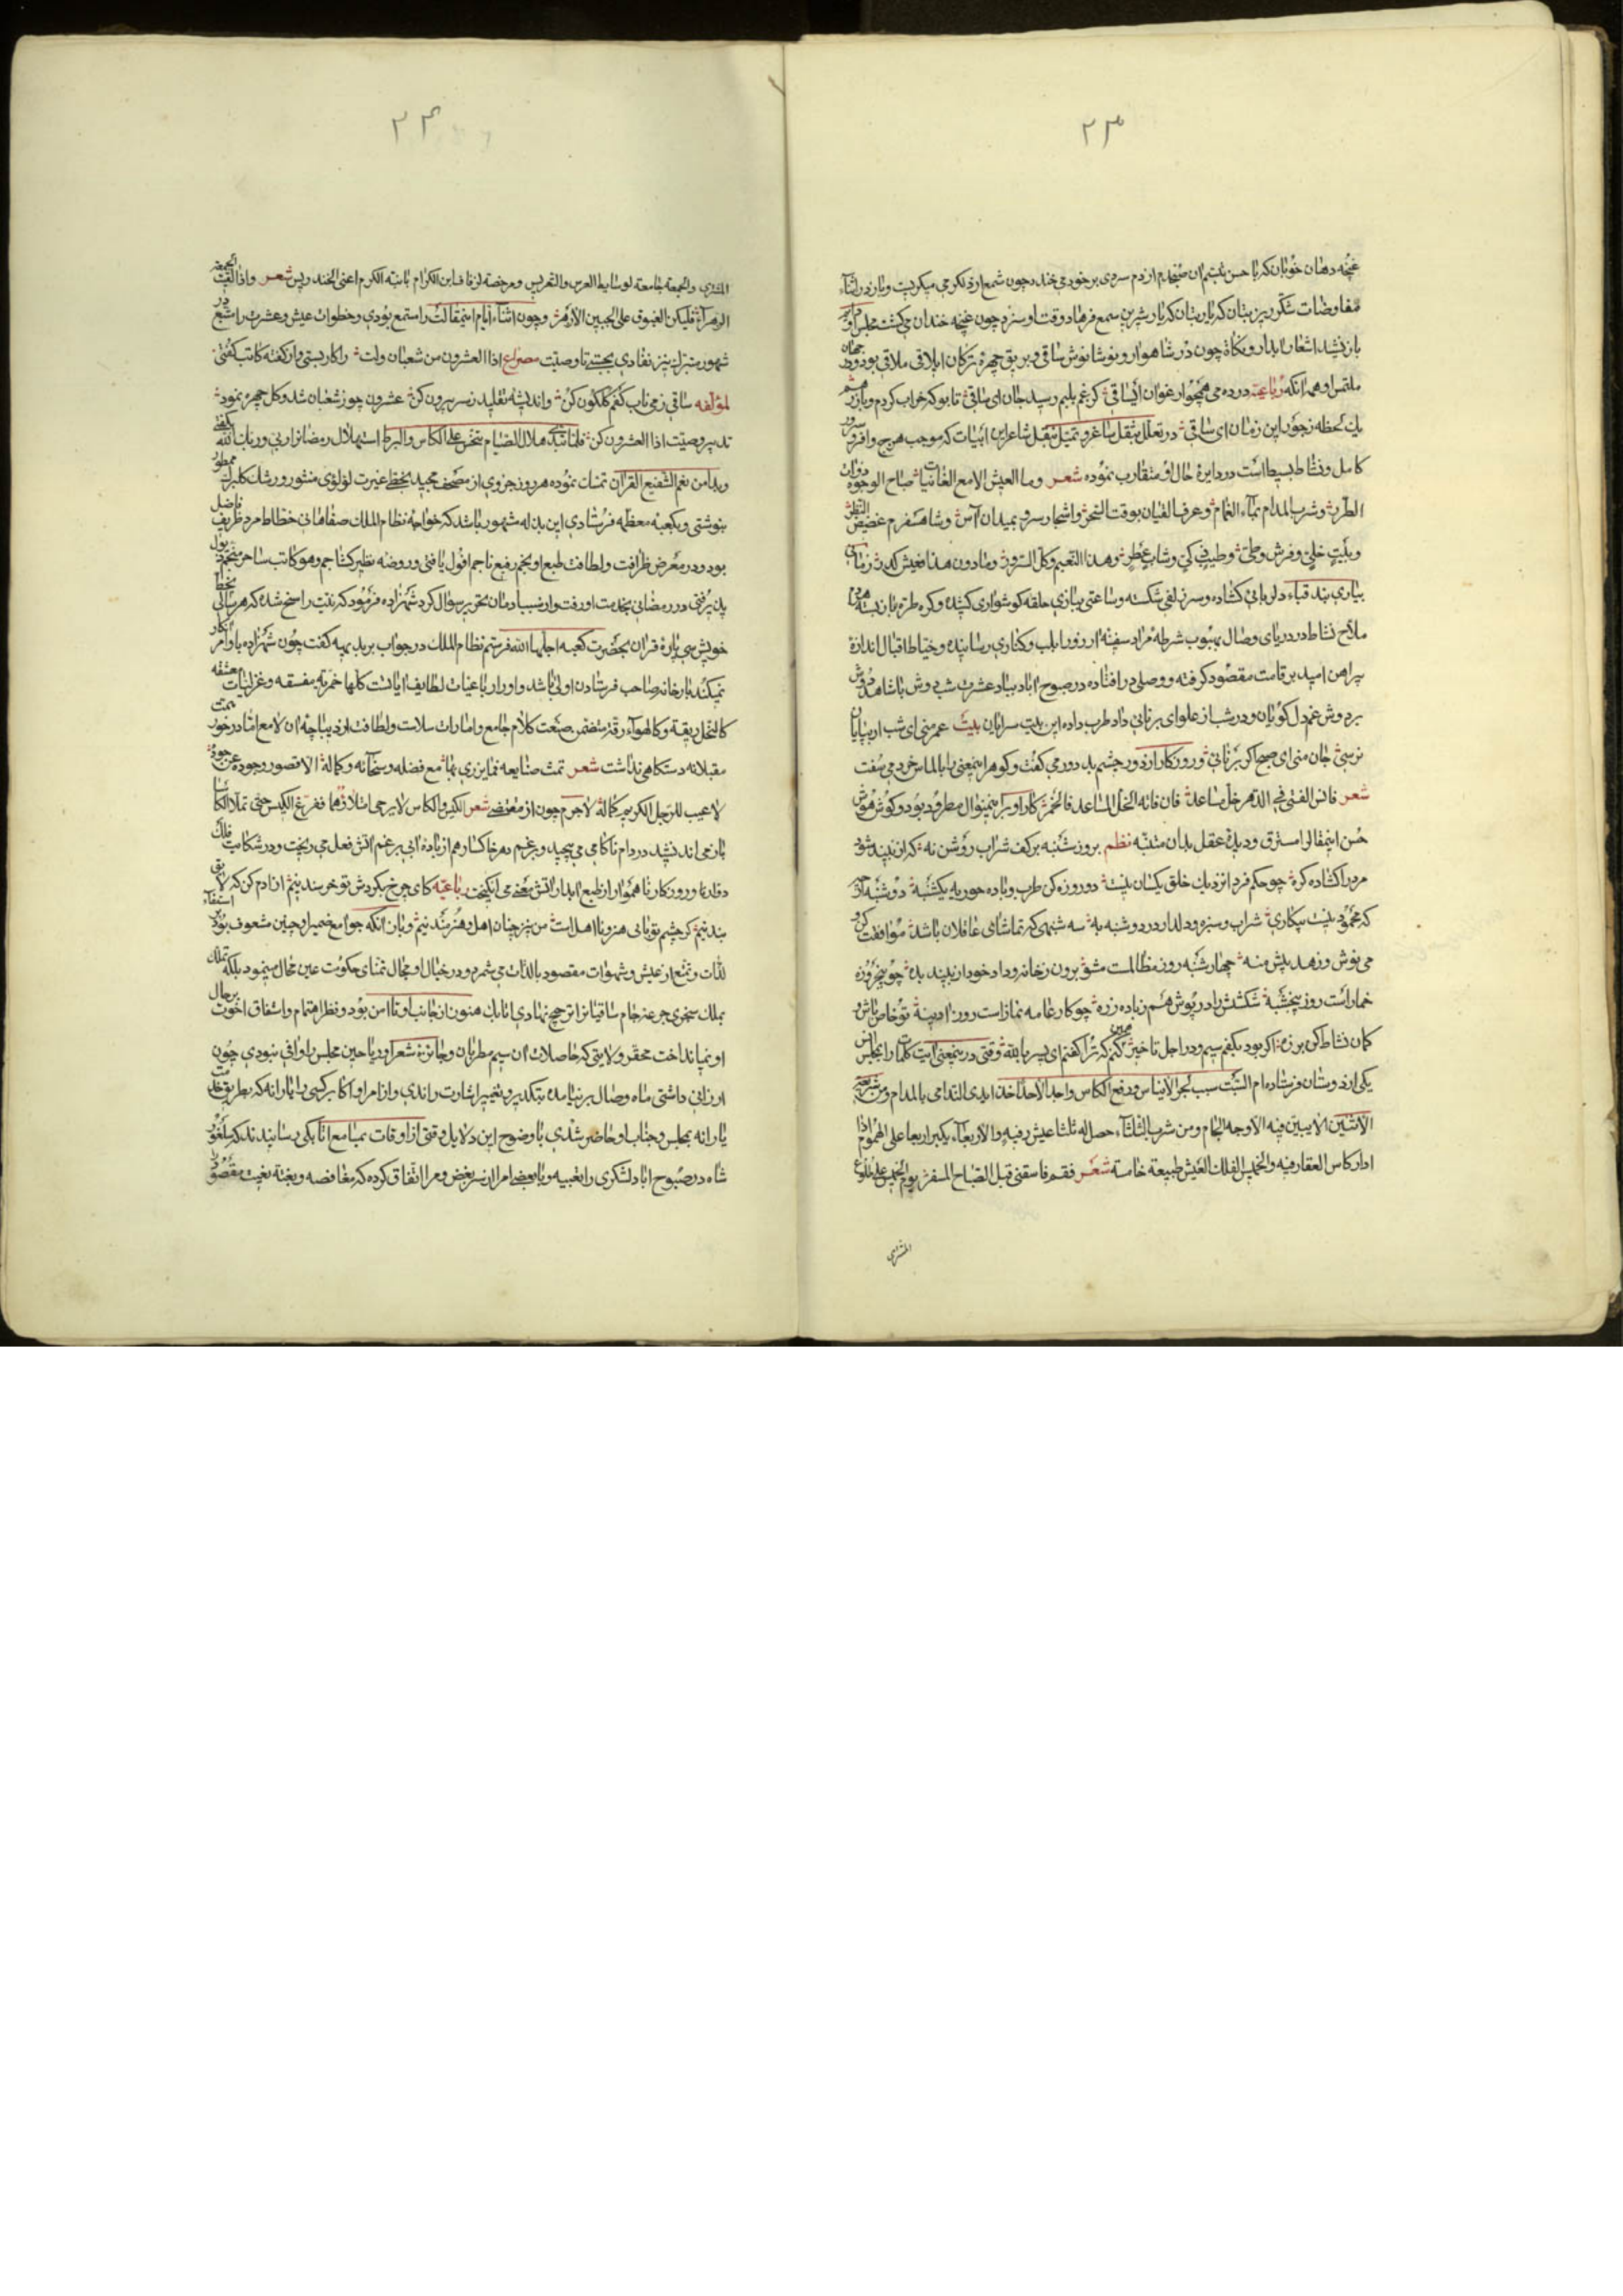 ۲۳
غنچه دهان خوبان که با حسن تبسم ان صبحدم از دم سردی بر خود می خندد چون شمع از دلگرمی میکریست و باز در اثناء
مفاوضات شکرریز بتان که یا رب شیرین سمع فرهاد وقت او سزد چون غنچه خندان می کشت مجلس او
باز نشید اشعار ابدار و نکاة چون در شاهوار و نوشانوش ساقی و بریق چهره ترکان ایلاقی ملاقی بود و ورد
ملتمس او همه انکه رباعیة درده می همچو ارغوان ای ساقی کز غم بلبم رسید جان ای ساقی تا بو که خراب کردم و باز رهم
یک لحظه ز جور این زمان ای ساقی در تعلل بنقل ساغر و تمثل بنقل شاعر این ابیات که موجب هرج وافر و سرور
کامل و نشاط بسیط است در دایره حال او متقارب نموده شعر وما العیش الا مع الغانیات صباح الوجوه ذوات
الطرر وشرب المدام بماء الغمام وعزف القیان بوقت السحر واشجار سرو بمیدان آس وشاهسفرم غضیض
وبیت خلی وفرش وطی وطیب ذکی وشاب عطر وهذا النعیم وکل السرور وما دون هذا فعیش کدر زمانی
بیاری بند قباء دلربائی کشاده و سر زلفی شکسته و ساعتی ببازی حلقه کوشواری کشیده و کره طره باز بسته
ملاح نشاط در دریای وصال بهبوب شرطه مراد سفینه ارزو را بلب و کناری رسانیده و خیاط اقبال اندازه
پیراهن امید بر قامت مقصود کرفته و وصلی در افتاده در صبوح اباد بیاد عشرت شب دوش با شاهد
بر دوش غم دل کویان و در شب از علوای برنائی داد طرب داده این بیت سرایان بیت عمر منی ای شب ار بپایان
نرسی جان منی ای صبح اکر برنائی و روزکار از دور چشم بد دور می کفت و کوهر اینمعنی را بالماس خرد می سفت
شعر فانس الفتی فی الدهر خل مساعد فان فاته الخل المساعد فالخمر کار او برینمنوال مطرد بود و کوش هوش
حسن اینمقال را مسترق و دیده عقل بدان متنبه نظم بروز شنبه بر کف شراب روشن نه که از نبید شود
مرد را کشاده کره چو حکم فردا نزدیک خلق یکسان نیست دو روزه کن طرب و باده خور به یکشنبه دوشنبه از
که مخمود نیست بیکاری شراب و سبزه و دلدار در دوشنبه به سه شنبهی که تماشای غافلان باشد موافقت
می نوش و زهد پیش منه چهارشنبه روز مظالمست مشو برون ز خانه و داد خود از نبید بده چو پنجروزه
خمار است روز پنجشنبه شکنش را در پوش هم ز باده زره چو کار عامه نماز است روز ادینه تو خاص باش و
کمان نشاط کن بر زه اکر بود بکفم سیم و در اجل تاخیر کنم که ترا کفتم ای پسر بالله وقتی در ینمعنی این کلمات را بمجلس انس
یکی از دوستان فرستاده ام السبت سبب لجر الایناس ودفع الکاس واحد الاحد اخذ ایدی الندامی بالمدام ومن شریعة
الاثنین لا یبین فیه الاوجه الجام ومن شرب الثلثاء حصل له ثلثا عیش رفیه والاربعاء یکبر اربعا علی الهموم اذا
ادار کاس العقار فیه والخمیس الفلک العیش طبیعة خامسة شعر فقم فاسقنی قبل الصباح المسفر یوم الخمیس علی طلوع
المشتری
۲۴
المشتری والجمعة جامعة لوسایط العرس والتعریس ومرخصة لزفاف ابن الکرام بابنة الکرم اعنی الخندریس شعر واذا الفت الجمعة
الزهراء فلیکن الغبوق علی الجبین الازهر و چون اثناء ایام اینمقالت را مستمع بودی و خطوات عیش و عشرت را متبع در
شهور متبرک نیز نفادی بجستی تا وصیت مصراع اذا العشرون من شعبان ولت را کار بستی و از کفته کاتب کفتی
لمؤلفه ساقی ز می ناب کفم کلکون کن و اندیشه تقلید ز سر بیرون کن عشرون چو ز شعبان شد و کل چهره نمود
تدبیر وصیت اذا العشرون کن فلما تبدی هلال الصیام تنحی علی الکاس والبربط استهلال رمضانرا ربی و ربک الله کفتی
و بدامن نعم الشفیع القرآن تمسک نموده هر روز جزوی از مصحف مجید بخطی غیرت لؤلؤی منثور و رشک کلبرک ممطور
بنوشتی و بکعبه معظمه فرستادی این بذله مشهور باشد که خواجه نظام الملک صفاهانی خطاط مرد ظریف فاضل
بود و در معرض ظرافت و لطافت طبع او بحکم رفیع ناجم افول یافتی و روضه نظیر کشاجم وهو کاتب ساحر منجم
پذیرفتی در رمضانی بخدمت او رفت و از نسیاد مان تحریر سوال کرد شهزاده فرمود که نیت راسخ شده که هر سالی بخط
خویش سی پارۀ قران بحضرت کعبه اجلها الله فرستم نظام الملک در جواب بر بدیهه کفت چون شهزاده باوامر
نمیکند بارخانه صاحب فرستادن اولی باشد و او را رباعیات لطایف ایاتست کلها خمریة مفسقه و غزلیات معشقه
کالنخل ریقة وکالهواء رقة متضمن صنعت کلام جامع و امارات سلاست و لطافت از دیباچه ان لامع اما در خور همت
مقبلانه دستکاهی نداشت شعر تمت صنایعه فما یزری بها مع فضله وسخائه وکماله الا قصور وجوده عن جوده
لا عیب للرجل الکریم کماله لا جرم چون از مقتضی شعر الکیس والکاس لا یرجی امتلاؤهما ففرغ الکیس حتی تملا الکاسا
باز می اندیشد در دام ناکامی می پیچید و برغم دهر خاکسار هم از باده ابی بر غم اتش فعل می ریخت و در شکایت فلک
دوار و روزکار ناهموار از طبع ابدار اتش معنی می انکیخت رباعیة کای چرخ بکردش تو خرسند نیم ازادم کن که لایق
بند نیم کر چشم تو بابی هنر و نااهل است من نیز چنان اهل و هنرمند نیم و باز انکه جوامع ضمیر او چنین مشعوف بود
لذات و تمتع از عیش و شهوات مقصود بالذات می شمرد و در خیال او مجال تمنای حکومت عین محال مینمود بلکه تملک
بملک سنجری جرعه جام ساقیانرا ترجیح نهادی اتابک هنوز از جانب او نا امن بود و نظر اهتمام و اشفاق اخوت بر حال
او نپانداخت محقر ولایتی که حاصلات ان سیم مطربان و جائزه شعرا و ریاحین مجلس او وافی نبودی چون
ارزانی داشتی ماه وصال بر نیامده بتکدیر و تغییر اشارت راندی و از امرا و اکابر کسی را یارا نه که بطریق خدمت
یارانه بمجلس و جناب او حاضر شدی با وضوح این دلایل وقتی از اوقات بمسامع اتابکی رسانیدند که سلغور
شاه در صبوح اباد لشکری را تعبیه و با بعضی امرا از سر بغض و مرا اتفاق کرده که مغافصه و بغتة بغیت مقصود